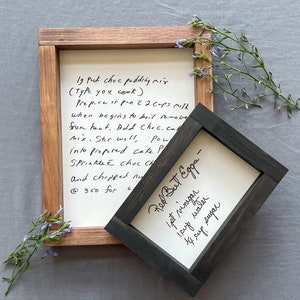 1 g pick choc pudding mix
(Type you cook)
Prepare in pan 2 2 cups milk
when begins to boil remove
from heat. Add choc. ca
mix. Stir well, Pou
into prepared cake p
Sprinkle choc ch
and chopped nu
@ 350 for
Red Beet Eggs -
1 pt vinegar
1 cup water
1/2 cup sugar